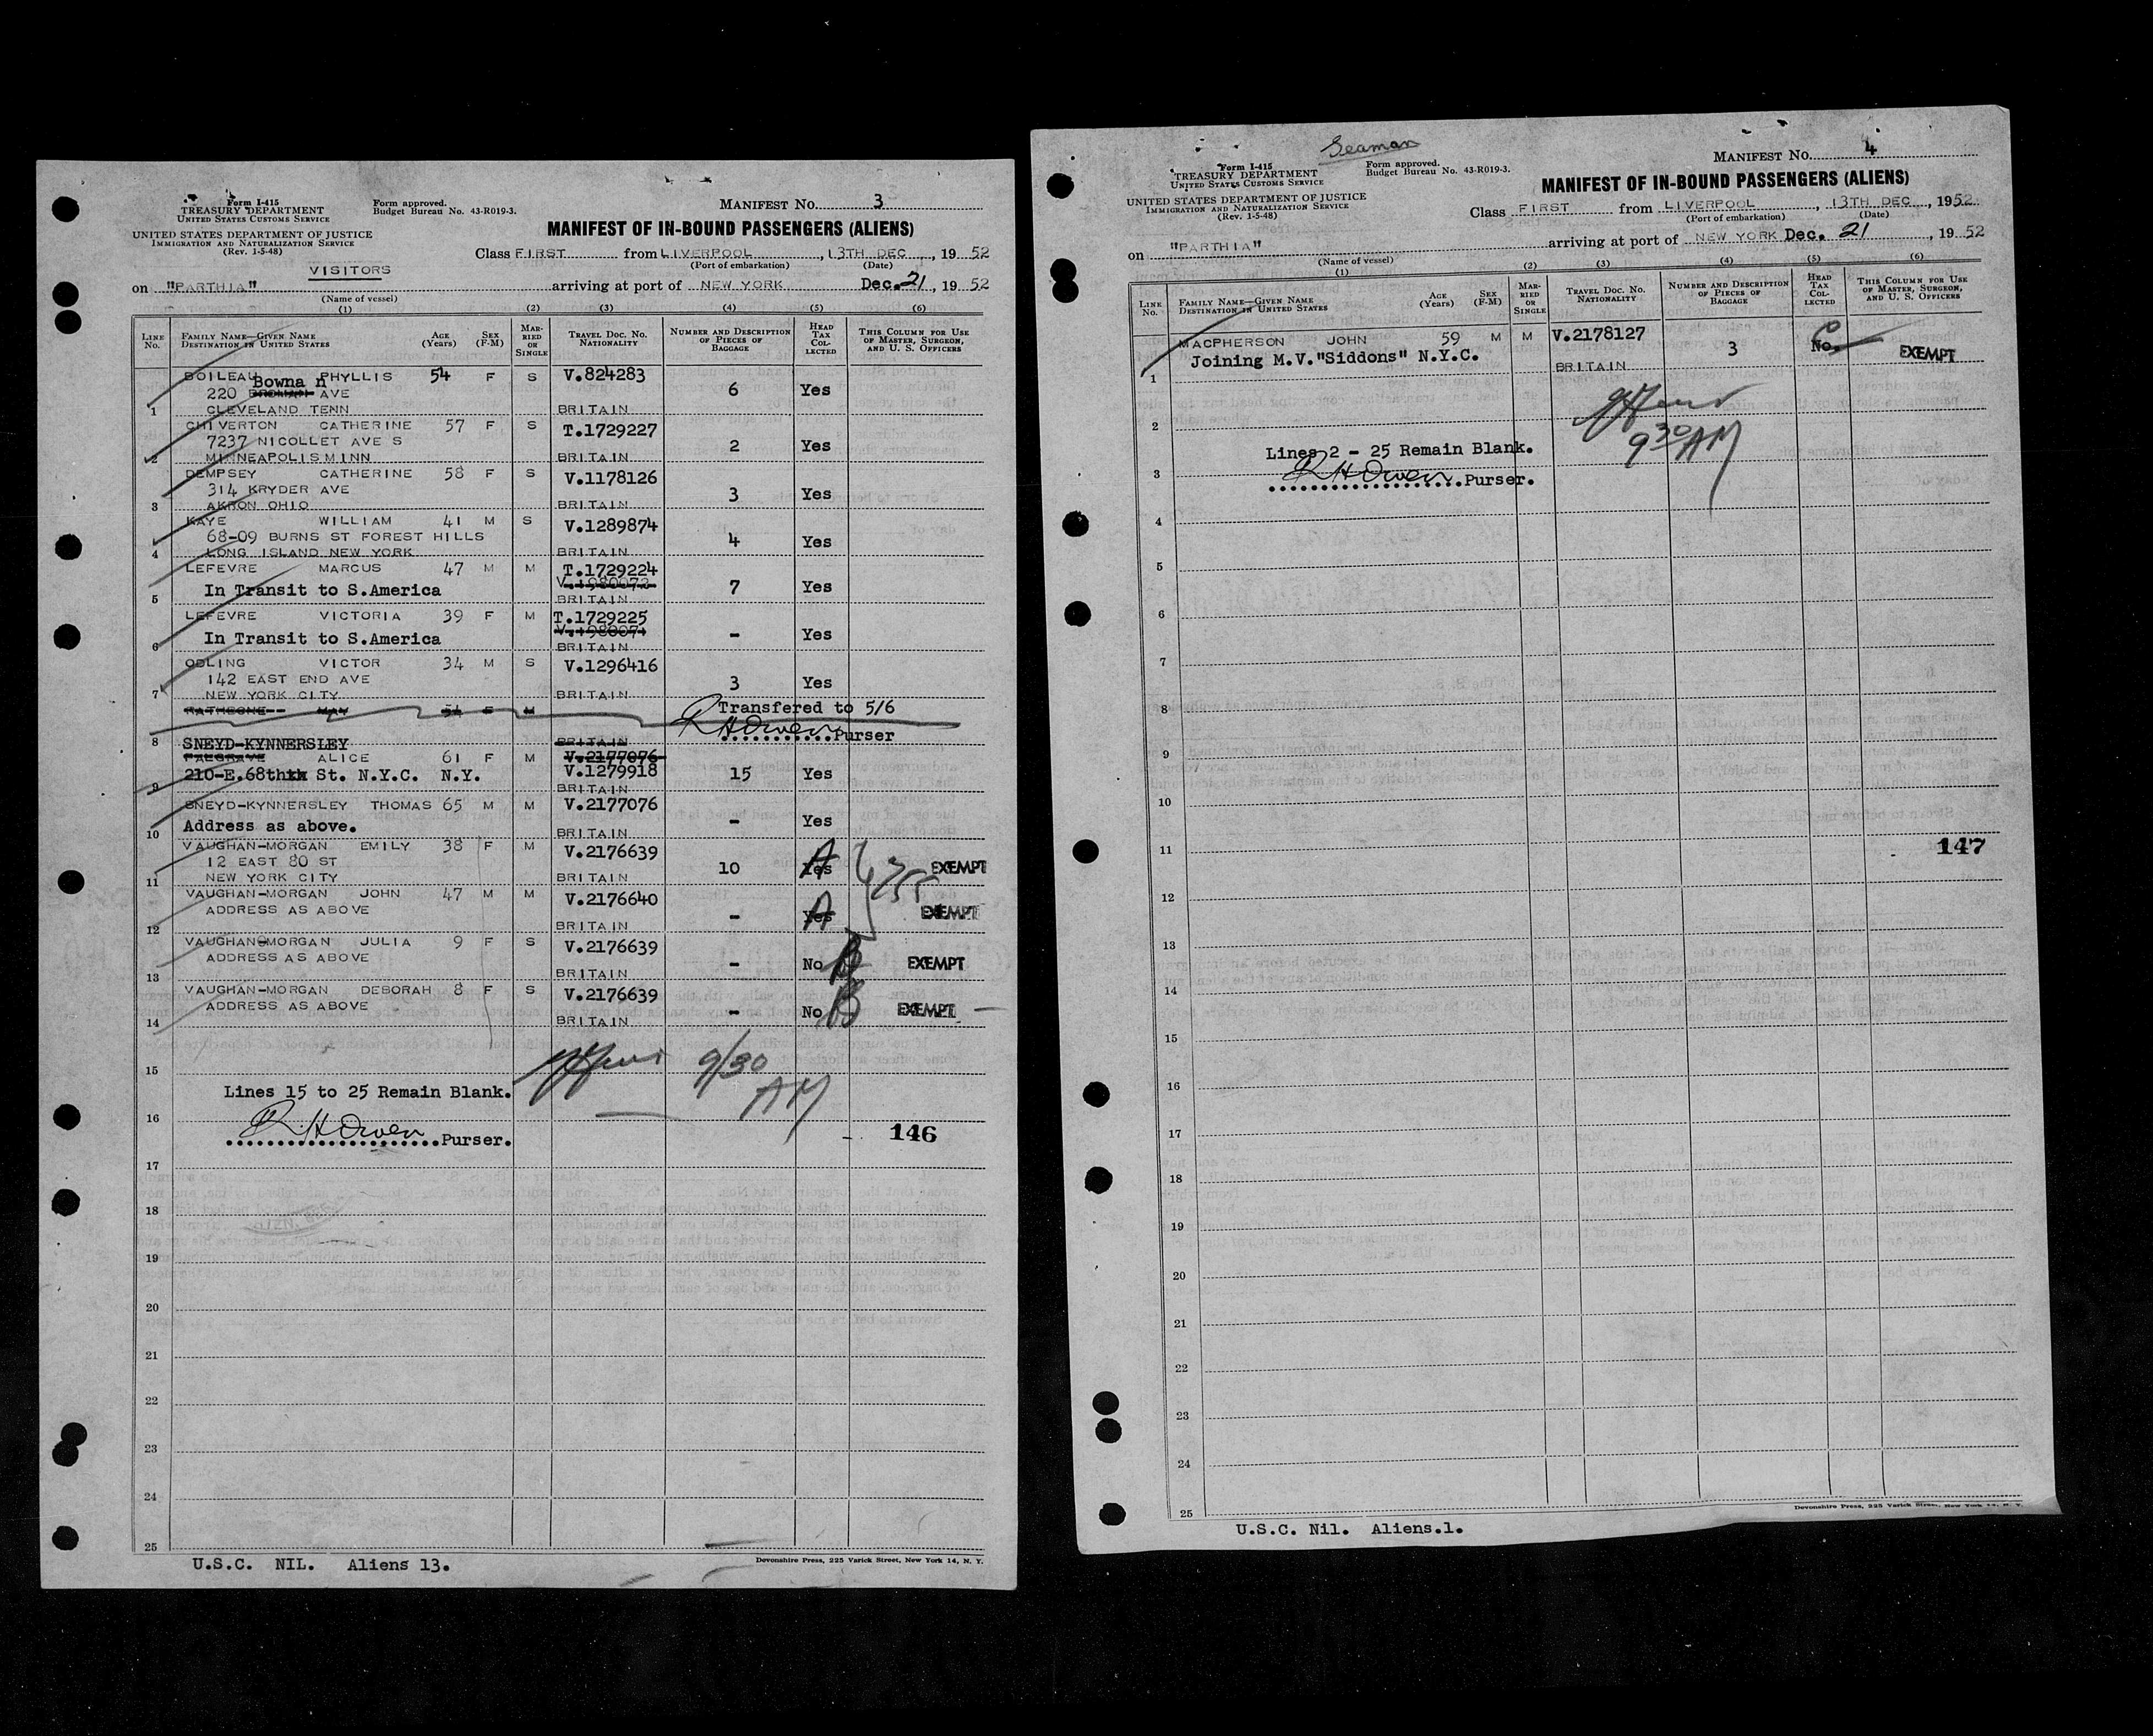 Form I-415
TREASURY DEPARTMENT
UNITED STATES CUSTOMS SERVICE
Form approved.
Budget Bureau No. 43-R019-3.
MANIFEST NO. 3
UNITED STATES DEPARTMENT OF JUSTICE
IMMIGRATION AND NATURALIZATION SERVICE
(Rev. 1-5-48)
MANIFEST OF IN-BOUND PASSENGERS (ALIENS)
Class FIRST from LIVERPOOL, 13TH DEC, 1952
(Port of embarkation) (Date)
VISITORS
on "PARTHIA" arriving at port of NEW YORK Dec. 21, 1952
(Name of vessel)
(1) (2) (3) (4) (5) (6)
LINE No. FAMILY NAME—GIVEN NAME DESTINATION IN UNITED STATES AGE (Years) SEX (F-M) MARRIED OR SINGLE TRAVEL DOC. NO. NATIONALITY NUMBER AND DESCRIPTION OF PIECES OF BAGGAGE HEAD TAX COLLECTED THIS COLUMN FOR USE OF MASTER, SURGEON, AND U. S. OFFICERS
BOILEAU PHYLLIS 54 F S V.824283
220 Bowman AVE 6 Yes
1 CLEVELAND TENN BRITAIN
CHIVERTON CATHERINE 57 F S T.1729227
7237 NICOLLET AVE S 2 Yes
2 MINNEAPOLIS MINN BRITAIN
DEMPSEY CATHERINE 58 F S V.1178126
314 KRYDER AVE 3 Yes
3 AKRON OHIO BRITAIN
KAYE WILLIAM 41 M S V.1289874
68-09 BURNS ST FOREST HILLS 4 Yes
4 LONG ISLAND NEW YORK BRITAIN
LEFEVRE MARCUS 47 M M T.1729224
V.1980072
In Transit to S.America 7 Yes
5 BRITAIN
LEFEVRE VICTORIA 39 F M T.1729225
V.1980071
In Transit to S.America - Yes
6 BRITAIN
ODLING VICTOR 34 M S V.1296416
142 EAST END AVE 3 Yes
7 NEW YORK CITY BRITAIN
RATHBONE MAY 54 F M Transfered to 5/6
8 BRITAIN R H Owen Purser
SNEYD-KYNNERSLEY
PALGRAVE ALICE 61 F M V.2177076
210-E.68th St. N.Y.C. N.Y. V.1279918 15 Yes
9 BRITAIN
SNEYD-KYNNERSLEY THOMAS 65 M M V.2177076
Address as above. - Yes
10 BRITAIN
VAUGHAN-MORGAN EMILY 38 F M V.2176639
12 EAST 80 ST 10 Yes A EXEMPT
11 NEW YORK CITY BRITAIN
VAUGHAN-MORGAN JOHN 47 M M V.2176640
ADDRESS AS ABOVE - Yes A EXEMPT
12 BRITAIN
VAUGHAN-MORGAN JULIA 9 F S V.2176639
ADDRESS AS ABOVE - No B EXEMPT
13 BRITAIN
VAUGHAN-MORGAN DEBORAH 8 F S V.2176639
ADDRESS AS ABOVE - No B EXEMPT
14 BRITAIN
9/30 AM
15
Lines 15 to 25 Remain Blank.
16
R H Owen Purser.
146
17
18
19
20
21
22
23
24
25
U.S.C. NIL. Aliens 13.
Devonshire Press, 225 Varick Street, New York 14, N. Y.
Seaman
Form I-415
TREASURY DEPARTMENT
UNITED STATES CUSTOMS SERVICE
Form approved.
Budget Bureau No. 43-R019-3.
MANIFEST NO. 4
UNITED STATES DEPARTMENT OF JUSTICE
IMMIGRATION AND NATURALIZATION SERVICE
(Rev. 1-5-48)
MANIFEST OF IN-BOUND PASSENGERS (ALIENS)
Class FIRST from LIVERPOOL, 13TH DEC, 1952
(Port of embarkation) (Date)
on "PARTHIA" arriving at port of NEW YORK Dec. 21, 1952
(Name of vessel)
(1) (2) (3) (4) (5) (6)
LINE No. FAMILY NAME—GIVEN NAME DESTINATION IN UNITED STATES AGE (Years) SEX (F-M) MARRIED OR SINGLE TRAVEL DOC. NO. NATIONALITY NUMBER AND DESCRIPTION OF PIECES OF BAGGAGE HEAD TAX COLLECTED THIS COLUMN FOR USE OF MASTER, SURGEON, AND U. S. OFFICERS
MACPHERSON JOHN 59 M M V.2178127
Joining M.V."Siddons" N.Y.C. 3 No. C EXEMPT
1 BRITAIN
2
9 30 AM
Lines 2 - 25 Remain Blank.
3 R H Owen Purser.
4
5
6
7
8
9
10
11
147
12
13
14
15
16
17
18
19
20
21
22
23
24
25
Devonshire Press, 225 Varick Street, New York 14, N. Y.
U.S.C. Nil. Aliens.1.